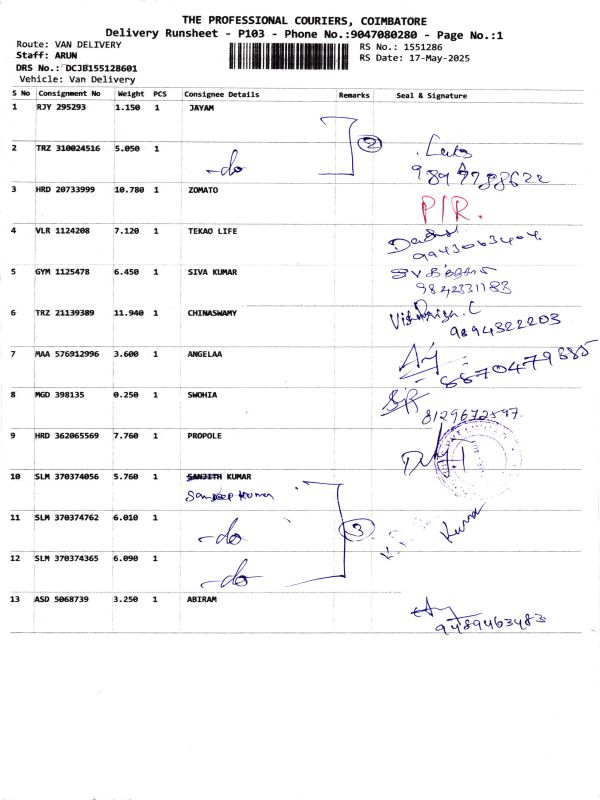 THE PROFESSIONAL COURIERS, COIMBATORE
Delivery Runsheet - P103 - Phone No.:9047080280 - Page No.:1
Route: VAN DELIVERY
RS No.: 1551286
Staff: ARUN
RS Date: 17-May-2025
DRS No.: DCJB155128601
Vehicle: Van Delivery
S No Consignment No Weight PCS Consignee Details Remarks Seal & Signature
1 RJY 295293 1.150 1 JAYAM
2
2 TRZ 310024516 5.050 1 -do
3 HRD 20733999 10.780 1 ZOMATO P/R.
4 VLR 1124208 7.120 1 TEKAO LIFE
9943063404
5 GYM 1125478 6.450 1 SIVA KUMAR
9842331183
6 TRZ 21139389 11.940 1 CHINASWAMY
9894322203
7 MAA 576912996 3.600 1 ANGELAA
8870479885
8 MGD 398135 0.250 1 SWOHIA
8129672597
9 HRD 362065569 7.760 1 PROPOLE
10 SLM 370374056 5.760 1 SANJITH KUMAR
Sandeep Kumar
11 SLM 370374762 6.010 1 -do 3 Kumar
12 SLM 370374365 6.090 1 -do
13 ASD 5068739 3.250 1 ABIRAM
9489463483